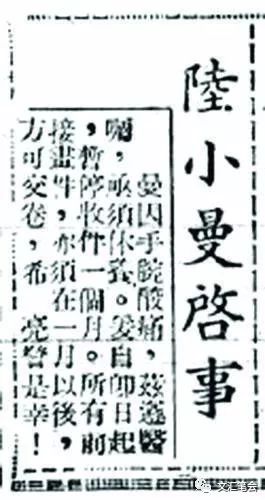 陸小曼啓事
曼因手腕酸痛，茲遵醫
囑，亟須休養。爰自卽日起
，暫停收件一個月。所有前
接畫件，亦須在一月以後，
方可交卷，希　亮詧是幸！
文汇笔会